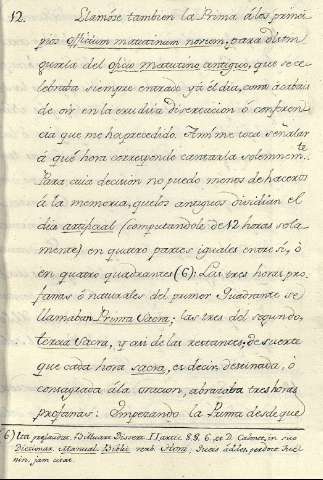 12. Llamóse tambien la Prima á los princi-
pios Officium matutinum novum, para distin-
guirla del oficio matutino antiguo, que se ce-
lebraba siempre entrado yá el dia, como acabais
de oir en la erudita disertacion ó conferen-
cia que me ha precedido. A mí me toca señalar
á qué hora corresponde cantarla solemnemte.
Para cuia decision no puedo menos de haceros
á la memoria, que los antiguos dividian el
dia artificial (computandole de 12 horas sola-
mente) en quatro partes iguales entre sí, ó
en quatro quadrantes (6): Las tres horas pro-
fanas ó naturales del primer Quadrante se
llamaban Prima Sacra; las tres del segundo,
tercia Sacra, y asi de las restantes; de suerte
que cada hora sacra, es decir, destinada, ó
consagrada á la oracion, abrazaba tres horas
profanas: Empezando la Prima desde que
(6) Ita praelaudat. Billuart Dissert. II artic. 8 §. 6. et D. Calmet, in suo
Diccionar. Manual Bibli. verb. Hora.
nin. jam citat.